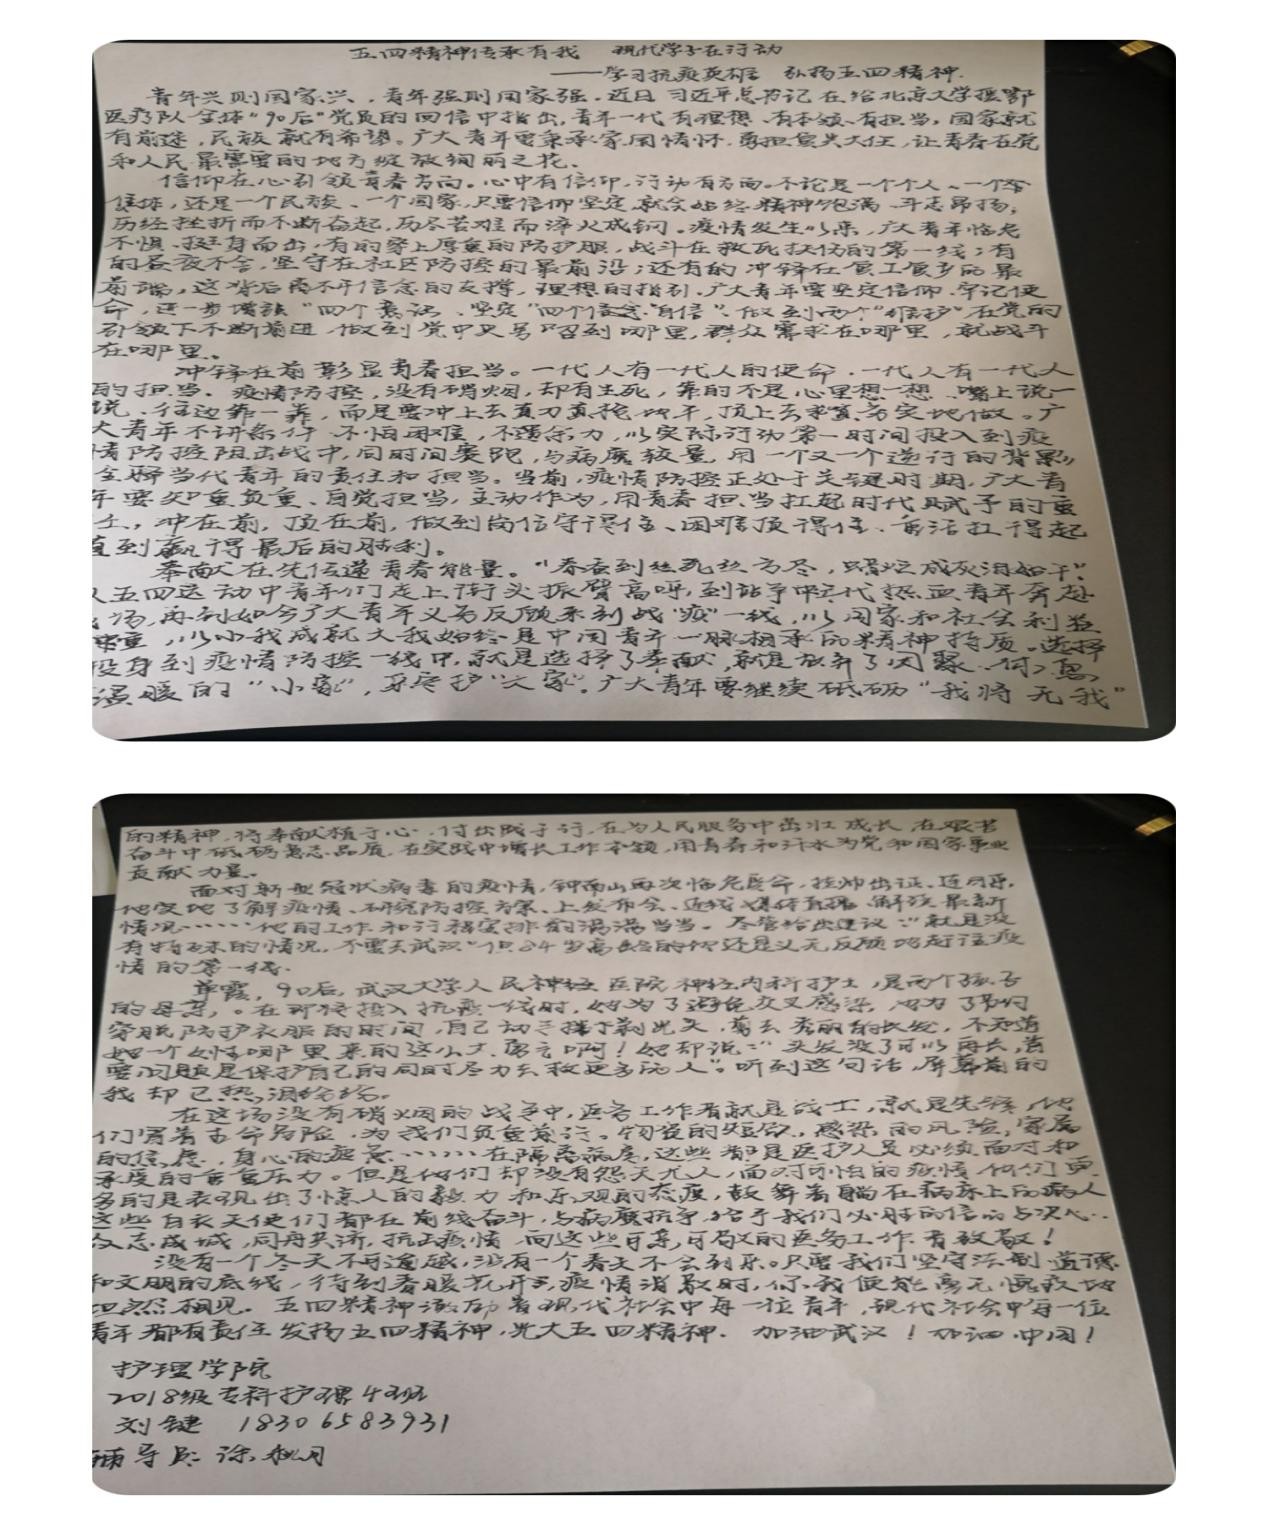 五四精神传承有我 现代学子在行动
——学习抗疫英雄 弘扬五四精神.
青年兴则国家兴，青年强则国家强.近日 习近平总书记在给北京大学援鄂
医疗队全体"90后"党员的回信中指出,青年一代有理想、有本领、有担当，国家就
有前途，民族就有希望。广大青年要秉承家国情怀，勇担复兴大任，让青春在党
和人民最需要的地方绽放绚丽之花。
信仰在心引领青春方向。心中有信仰,行动有方向。不论是一个个人、一个
集体，还是一个民族、一个国家,只要信仰坚定,就会始终精神饱满、斗志昂扬，
历经挫折而不断奋起，历尽苦难而淬火成钢。疫情发生以来，广大青年临危
不惧、挺身而出，有的穿上厚重的防护服，战斗在救死扶伤的第一线；有
的昼夜不舍，坚守在社区防控的最前沿；还有的冲锋在复工复产的最
前端，这背后离不开信念的支撑，理想的指引.广大青年要坚定信仰、牢记使
命，进一步增强"四个意识、坚定"四个自信"、做到两个"维护"在党的
引领下不断前进，做到党中央号召到哪里，群众需求在哪里，就战斗
在哪里。
冲锋在前彰显青春担当。一代人有一代人的使命，一代人有一代人
的担当。疫情防控，没有硝烟，却有生死，靠的不是心里想一想、嘴上说一
说、往边靠一靠，而是要冲上去真刀真枪地干，顶上去求真务实地做。广
大青年不讲条件、不怕困难，不遗余力，以实际行动第一时间投入到疫
情防控阻击战中,同时间赛跑，与病魔较量，用一个又一个逆行的背影
诠释当代青年的责任和担当。当前，疫情防控正处于关键时期，广大青
年要如重负重、自觉担当，主动作为，用青春担当扛起时代赋予的重
任，冲在前，顶在前，做到岗位守得住、困难顶得住、重活扛得起
直到赢得最后的胜利。
奉献在先传递青春能量。"春蚕到丝死丝方尽，蜡炬成灰泪始干"
五四运动中青年们走上街头振臂高呼，到战争年代热血青年奔赴
场，再到如今广大青年义务反顾来到战"疫"一线，以国家和社会利益
为重，以小我成就大我始终是中国青年一脉相承的精神特质。选择
投身到疫情防控一线中，就是选择了奉献，就是放弃了团聚、
温暖的"小家"，守护"大家"。广大青年要继续砥砺"我将无我"
的精神,将奉献植于心，付出践于行，在为人民服务中茁壮成长，在艰苦
奋斗中砥砺意志品质，在实践中增长工作本领，用青春和汗水为党和国家事业
贡献力量。
面对新型冠状病毒的疫情，钟南山再次临危受命，挂帅出征、连日来，
他实地了解疫情、研究防控方案、上发布会、连线媒体直播、解读最新
情况……他的工作和行程安排的满满当当。尽管给出建议："就是没
有特殊的情况，不要去武汉"但84岁高龄的他还是义无反顾地赶往疫
情的第一线.
单霞，90后，武汉大学人民神经医院神经内科护士，是两个孩子
的母亲，。在即将投入抗疫一线时，她为了避免交叉感染，也为了节约
穿脱防护衣服的时间，自己动手推了剃光头，剪去秀丽的长发，不知道
她一个女孩哪里来的这么大勇气啊！她却说："头发没了可以再长，首
要问题是保护自己的同时尽力去救更多的人"。听到这句话，屏幕前的
我却已热泪盈眶。
在这场没有硝烟的战争中，医务工作者就是战士，就是先锋，他
们冒着生命危险，为我们负重前行。物资的短缺，感染的风险，家属
的焦虑，身心的疲惫……在隔离病房，这些都是医护人员必须面对和
承受的重重压力。但是他们却没有怨天尤人，面对可怕的疫情他们更
多的是表现出了惊人的毅力和乐观的态度，鼓舞着躺在病床上的病人
这些白衣天使们都在前线奋斗，与病魔抗争，给予我们必胜的信心与决心..
众志成城，同舟共济，抗击疫情，向这些可亲,可敬的医务工作者致敬！
没有一个冬天不可逾越，没有一个春天不会到来。只要我们坚守法制 道德
和文明的底线，待到春暖花开,疫情消散时，你我便能毫无愧疚地
坦然相见。五四精神激励着现代社会中每一位青年，现代社会中每一位
青年都有责任发扬五四精神，光大五四精神.加油武汉！加油中国！
护理学院
2018级专科护理4班
刘键 18306583931
辅导员：徐秋月